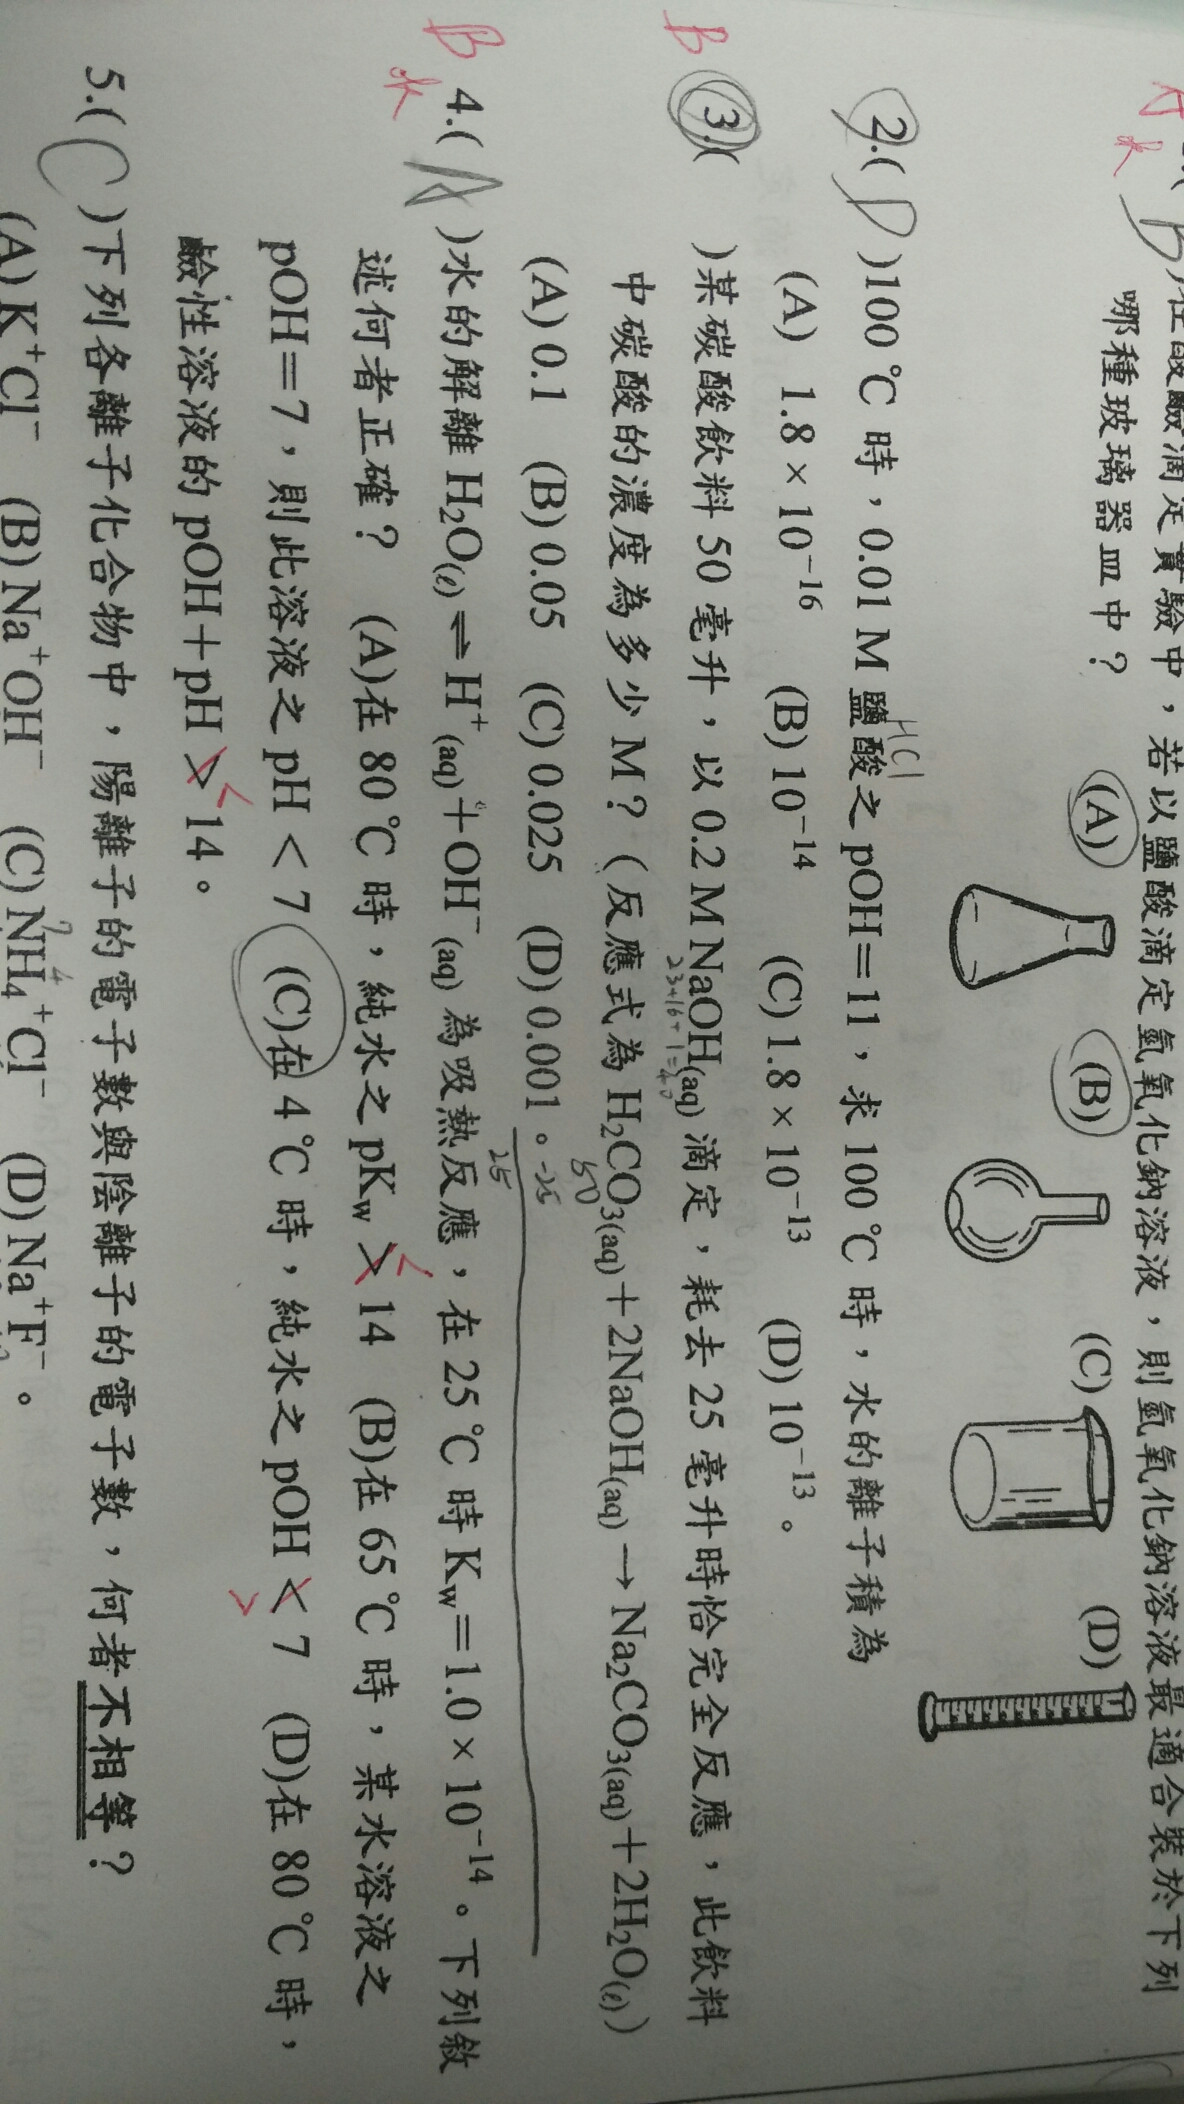 在酸鹼滴定實驗中，若以鹽酸滴定氫氧化鈉溶液，則氫氧化鈉溶液最適合裝於下列
哪種玻璃器皿中？ (A) (B) (C) (D)
2.(D)100 ℃ 時，0.01 M 鹽酸之 pOH＝11，求 100 ℃ 時，水的離子積為
HCl
(A) 1.8 × 10⁻¹⁶ (B) 10⁻¹⁴ (C) 1.8 × 10⁻¹³ (D) 10⁻¹³。
B 3.( )某碳酸飲料 50 毫升，以 0.2 M NaOH(aq) 滴定，耗去 25 毫升時恰完全反應，此飲料
23+16+1=40
中碳酸的濃度為多少 M？（反應式為 H₂CO₃(aq)＋2NaOH(aq)→Na₂CO₃(aq)＋2H₂O(ℓ)）
50
(A) 0.1 (B) 0.05 (C) 0.025 (D) 0.001。
25
B 4.(A)水的解離 H₂O(ℓ)⇌H⁺(aq)＋OH⁻(aq) 為吸熱反應，在 25 ℃ 時 Kw＝1.0 × 10⁻¹⁴。下列敘
述何者正確？ (A)在 80 ℃ 時，純水之 pKw > 14 (B)在 65 ℃ 時，某水溶液之
<
pOH＝7，則此溶液之 pH < 7 (C)在 4 ℃ 時，純水之 pOH < 7 (D)在 80 ℃ 時，
>
鹼性溶液的 pOH＋pH > 14。
<
5.(C)下列各離子化合物中，陽離子的電子數與陰離子的電子數，何者不相等？
(A) K⁺Cl⁻ (B) Na⁺OH⁻ (C) NH₄⁺Cl⁻ (D) Na⁺F⁻。